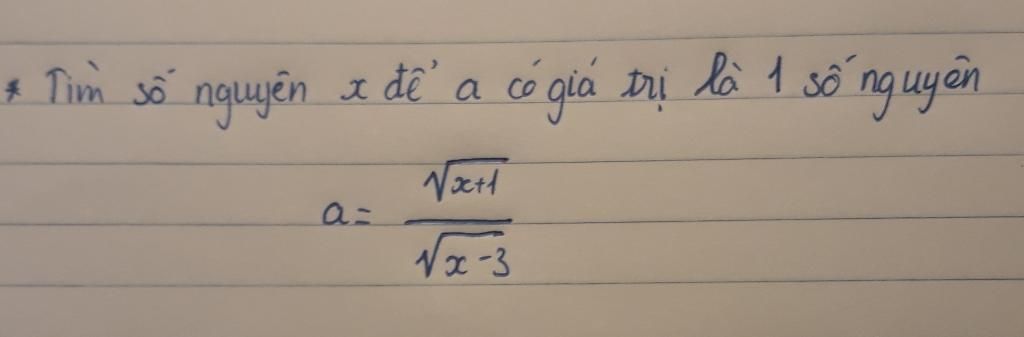 * Tìm số nguyên x để a có giá trị là 1 số nguyên
a = \frac{\sqrt{x+1}}{\sqrt{x-3}}